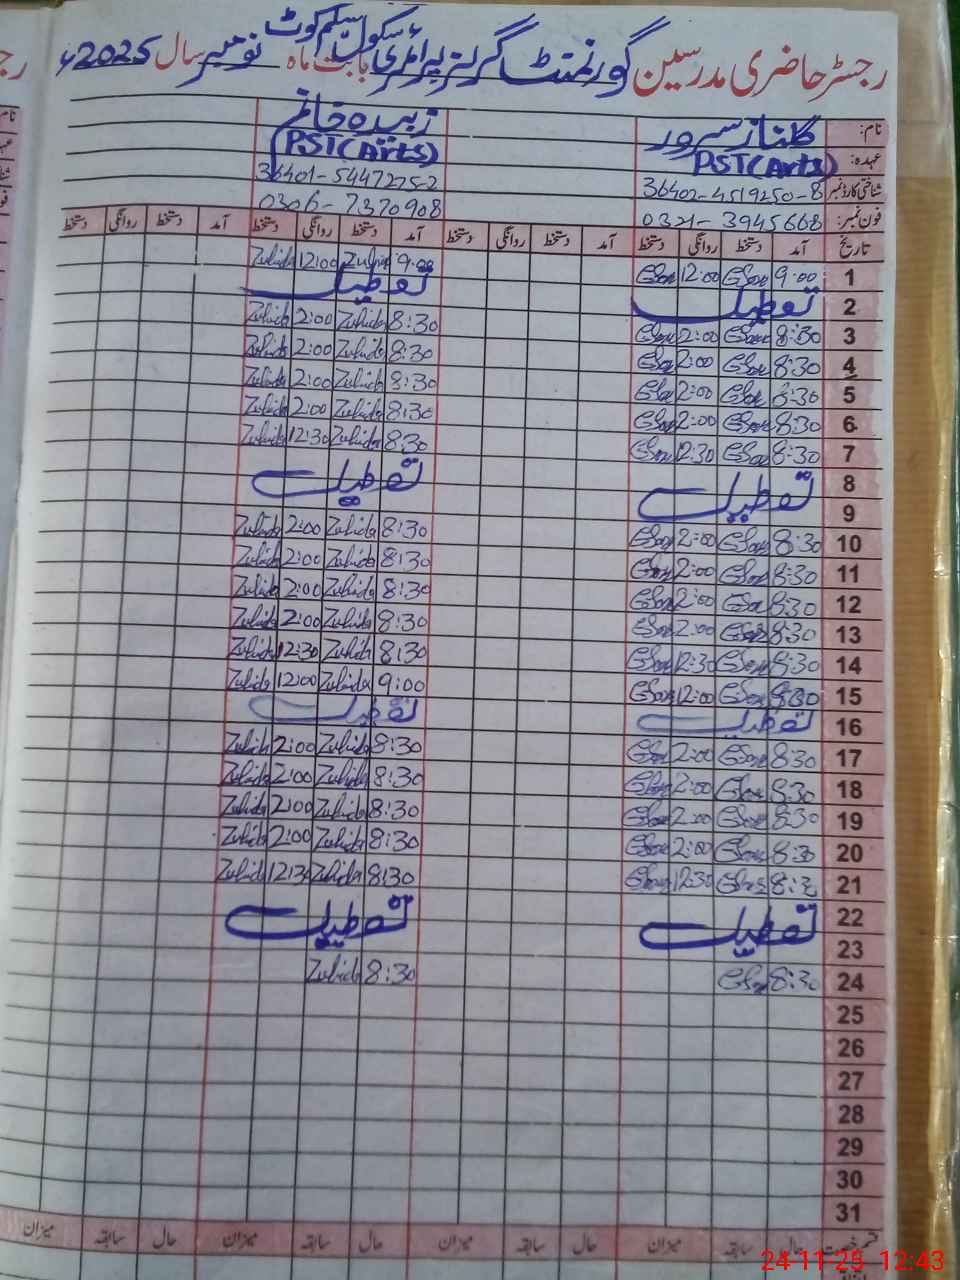 رجسٹر حاضری مدرسین گورنمنٹ گرلز پرائمری سکول سکیم کوٹ بابت ماہ نومبر سال 2025ء
نام: گلناز سرور زبیدہ خانم
عہدہ: PST(Arts) (PST(Arts)
شناختی کارڈ نمبر 36402-4519250-8 36401-5447275-2
فون نمبر: 0321-3945668 0306-7370908
تاریخ آمد دستخط روانگی دستخط آمد دستخط روانگی دستخط آمد دستخط روانگی دستخط آمد دستخط روانگی دستخط
1 9:00 12:00 9:00 Zubida 12:00 Zubida
2 تعطیل تعطیل
3 8:30 2:00 8:30 Zubida 2:00 Zubida
4 8:30 2:00 8:30 Zubida 2:00 Zubida
5 8:30 2:00 8:30 Zubida 2:00 Zubida
6 8:30 2:00 8:30 Zubida 2:00 Zubida
7 8:30 12:30 8:30 Zubida 12:30 Zubida
8 تعطیل تعطیل
9
10 8:30 2:00 8:30 Zubida 2:00 Zubida
11 8:30 2:00 8:30 Zubida 2:00 Zubida
12 8:30 2:00 8:30 Zubida 2:00 Zubida
13 8:30 2:00 8:30 Zubida 2:00 Zubida
14 8:30 12:30 8:30 Zubida 12:30 Zubida
15 12:00 9:00 Zubida 12:00 Zubida
16 تعطیل تعطیل
17 8:30 2:00 8:30 Zubida 2:00 Zubida
18 8:30 2:00 8:30 Zubida 2:00 Zubida
19 8:30 2:00 8:30 Zubida 2:00 Zubida
20 8:30 2:00 8:30 Zubida 2:00 Zubida
21 8:30 12:30 8:30 Zubida 12:30 Zubida
22 تعطیل تعطیل
23
24 8:30 8:30 Zubida
25
26
27
28
29
30
31
قسم رخصت حال سابقہ میزان حال سابقہ میزان حال سابقہ میزان حال سابقہ میزان
24-11-25 12:43